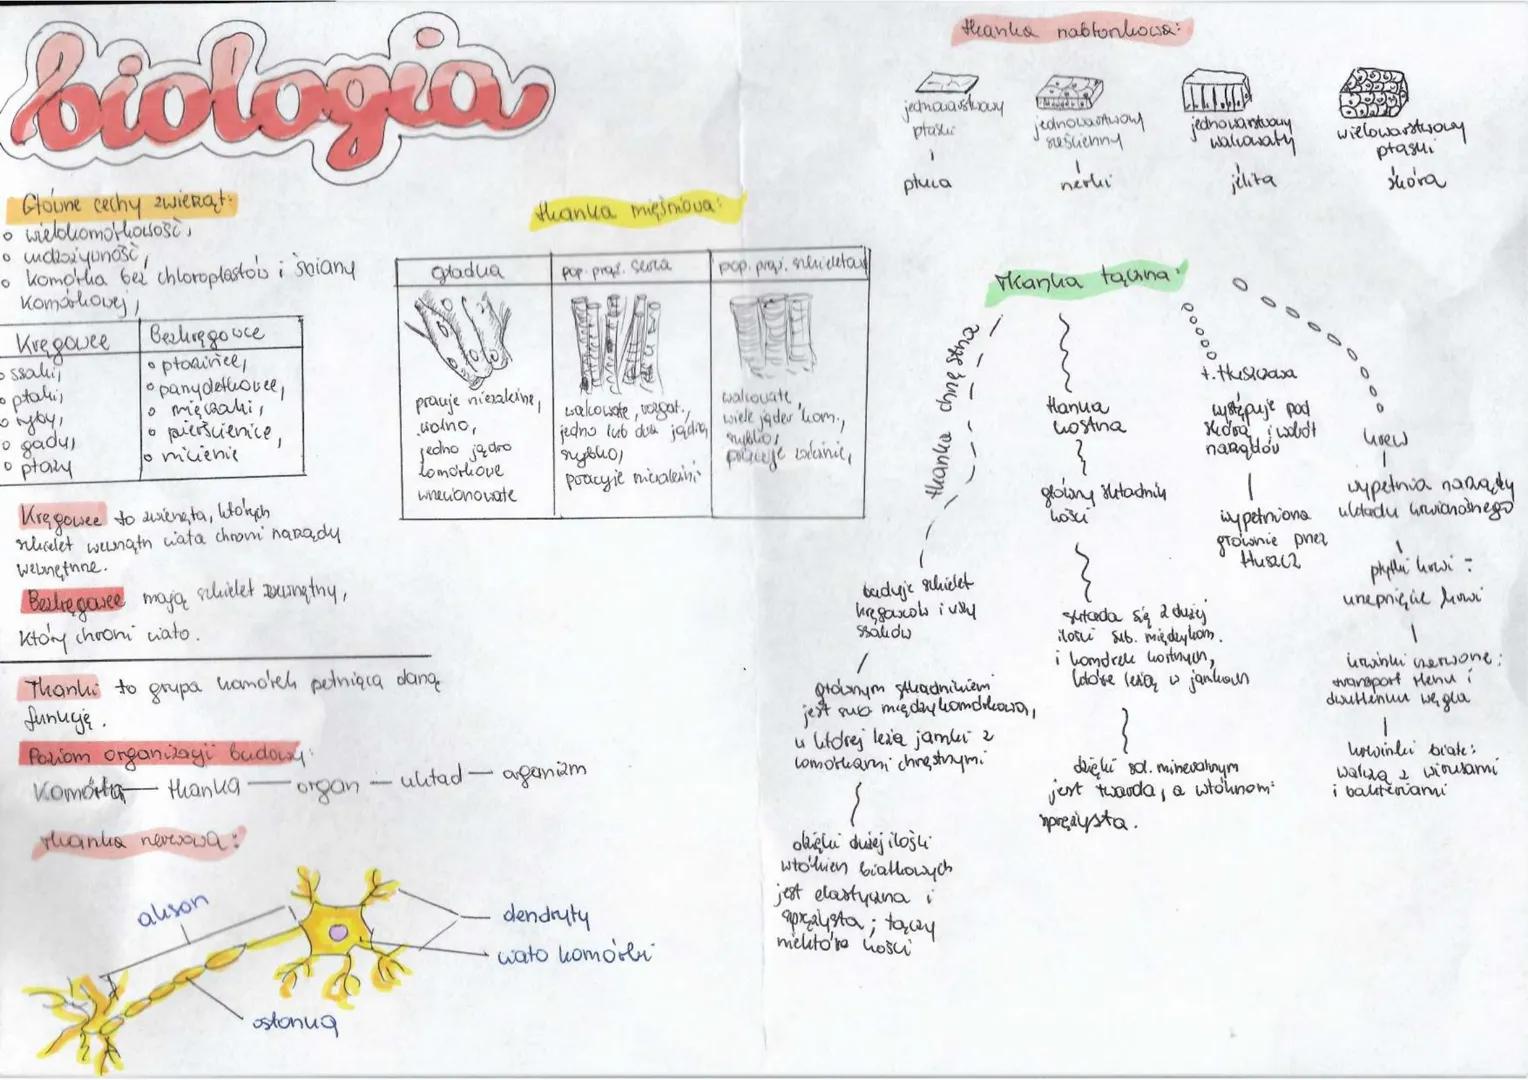 biologia
Główne cechy zwierząt:
wielokomórkowość,
cudzożywność,
komórka bez chloroplastów i ściany
komórkowej,
Kręgowce
ssaki,
ptaki,
ryby,
gady,
płazy
Bezkręgowce
płazińce,
parzydełkowce,
mięczaki,
pierścienice,
nicienie
Kręgowce to zwierzęta, których
szkielet wewnątrz ciała chroni narządy
wewnętrzne.
Bezkręgowce mają szkielet zewnętrzny,
który chroni ciało.
Tkanki to grupa komórek pełniąca daną
funkcję.
Poziom organizacji budowy:
Komórka — tkanka — organ — układ — organizm
tkanka nerwowa:
akson
dendryty
ciało komórki
osłonka
tkanka mięśniowa:
gładka
pracuje niezależnie,
wolno,
jedno jądro
komórkowe
wrzecionowate
pop. prąż. serca
walcowate, rozgał.,
jedno lub dwa jądra,
szybko,
pracuje niezależnie
pop. prąż. szkieletowa
walcowate,
wiele jąder kom.,
szybko,
pracuje zależnie,
tkanka nabłonkowa:
jednowarstwowy
płaski
płuca
jednowarstwowy
sześcienny
nerki
jednowarstwowy
walcowaty
jelita
wielowarstwowy
płaski
skóra
tkanka łączna:
tkanka chrzęstna
buduje szkielet
kręgowców i uszy
ssaków
głównym składnikiem
jest sub. międzykomórkowa,
w której leżą jamki z
komórkami chrzęstnymi
dzięki dużej ilości
włókien białkowych
jest elastyczna i
sprężysta; łączy
niektóre kości
tkanka
kostna
główny składnik
kości
składa się z dużej
ilości sub. międzykom.
i komórek kostnych,
które leżą w jamkach
dzięki sol. mineralnym
jest twarda, a włóknom:
sprężysta.
t. tłuszczowa
występuje pod
skórą i wokół
narządów
wypełniona
głównie przez
tłuszcz
krew
wypełnia narządy
układu krwionośnego
płytki krwi:
krzepnięcie krwi
krwinki czerwone:
transport tlenu i
dwutlenku węgla
krwinki białe:
walczą z wirusami
i bakteriami